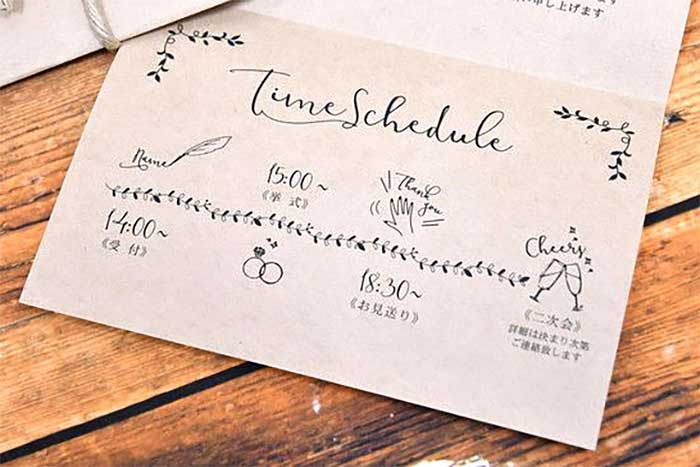 し上げます
Time Schedule
Name
14:00~
《受 付》
15:00~
《挙 式》
Thank
you
18:30~
《お見送り》
Cheers
《二次会》
詳細は決まり次第
ご連絡致します